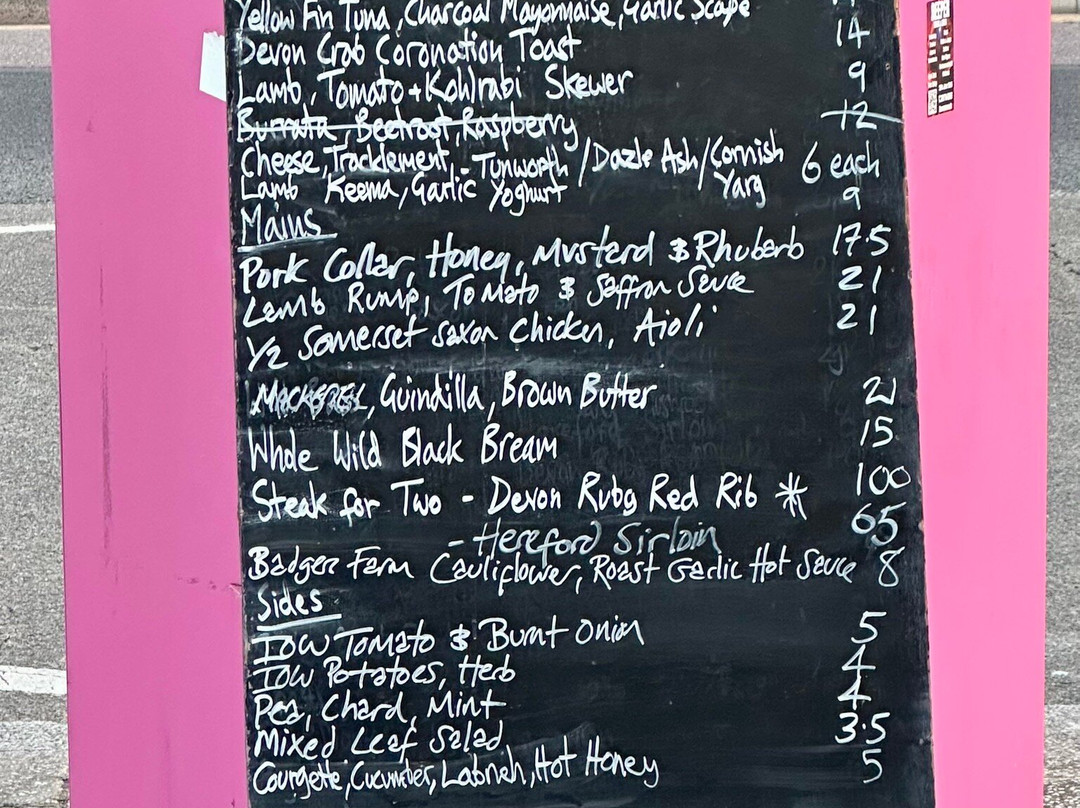 Yellow Fin Tuna, Charcoal Mayonnaise, Garlic Scape
Devon Crab Coronation Toast 14
Lamb, Tomato + Kohlrabi Skewer 9
Burrata, Beetroot, Raspberry 12
Cheese, Tracklement, - Tunworth / Dazle Ash / Cornish Yarg 6 each
Lamb Keema, Garlic Yoghurt 9
Mains
Pork Collar, Honey, Mustard & Rhubarb 17.5
Lamb Rump, Tomato & Saffron Sauce 21
1/2 Somerset Saxon Chicken, Aioli 21
Mackerel, Guindilla, Brown Butter 21
Whole Wild Black Bream 15
Steak for Two - Devon Ruby Red Rib * 100
- Hereford Sirloin 65
Badger Farm Cauliflower, Roast Garlic Hot Sauce 8
Sides
IOW Tomato & Burnt Onion 5
IOW Potatoes, Herb 4
Pea, Chard, Mint 4
Mixed Leaf Salad 3.5
Courgette, Cucumber, Labneh, Hot Honey 5